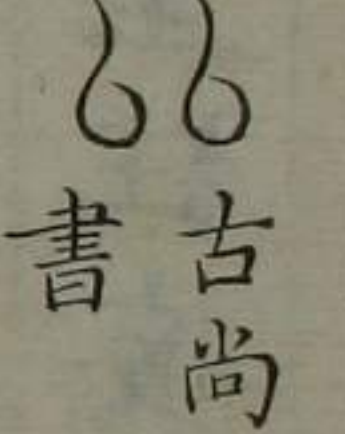 古尚
書